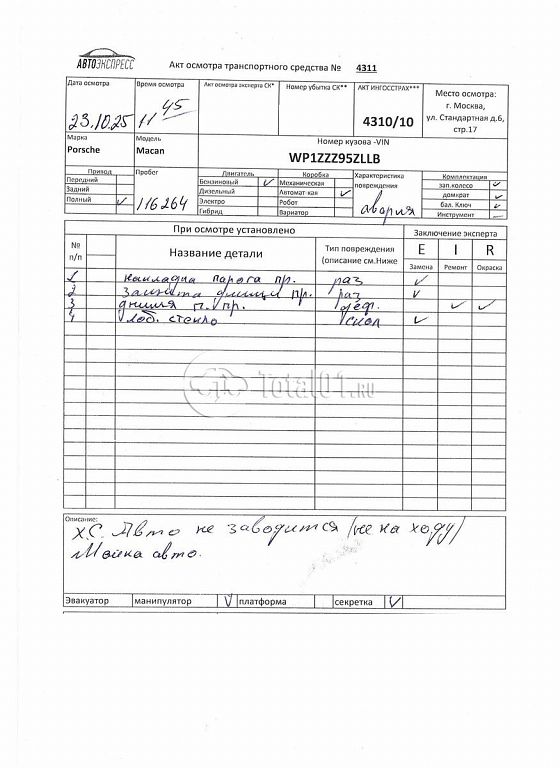 АВТОЭКСПРЕСС
Акт осмотра транспортного средства № 4311
Дата осмотра
23.10.25
Время осмотра
11 45
Акт осмотра эксперта СК*
Номер убытка СК**
АКТ ИНГОССТРАХ***
4310/10
Место осмотра:
г. Москва,
ул. Стандартная д.6,
стр.17
Марка
Porsche
Модель
Macan
Номер кузова -VIN
WP1ZZZ95ZLLB
Привод
Передний
Задний
Полный
Пробег
116264
Двигатель
Бензиновый
Дизельный
Электро
Гибрид
Коробка
Механическая
Автомат-кая
Робот
Вариатор
Характеристика
повреждения
авария
Комплектация
зап.колесо
домкрат
бал. Ключ
Инструмент
При осмотре установлено
Заключение эксперта
№
п/п
Название детали
Тип повреждения
(описание см.Ниже
E I R
Замена Ремонт Окраска
1 накладка порога пр. раз
2 Защита днища пр. раз
3 днища п. пр. деф.
4 Лоб. стекло скол
Total01.RU
Описание:
Х.С. Авто не заводится /не на ходу/
Мойка авто.
Эвакуатор манипулятор V платформа секретка V